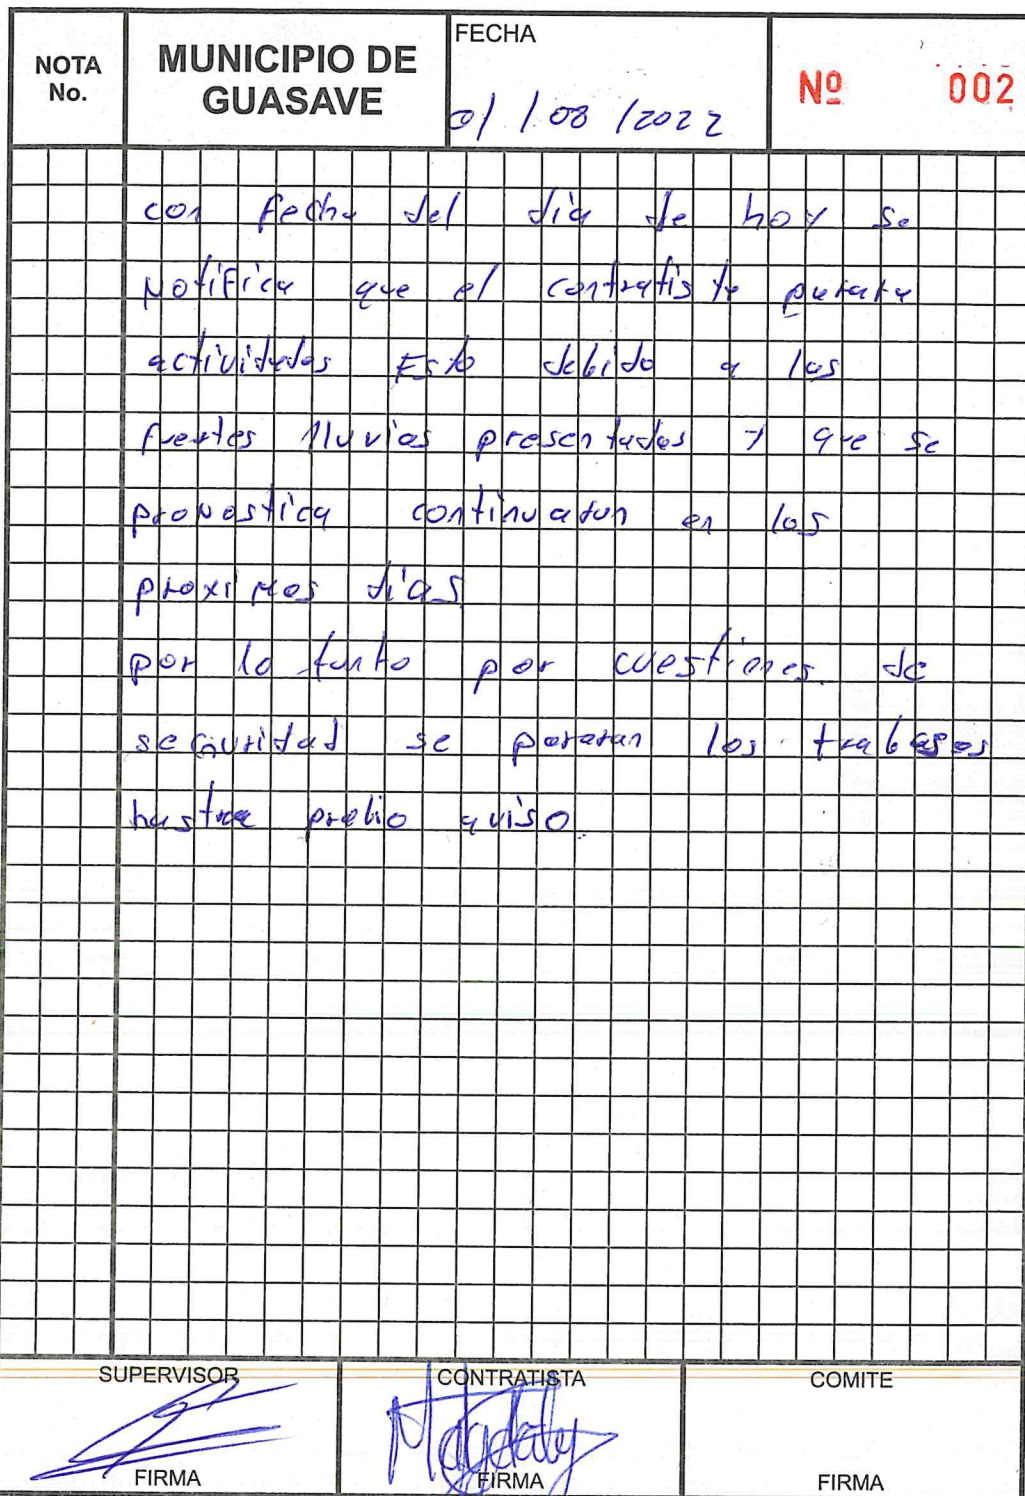 NOTA No.
MUNICIPIO DE GUASAVE
FECHA
01/08/2022
Nº 002
con fecha del dia de hoy se
Notifica que el contratista parara
actividades Esto debido a las
fuertes lluvias presentadas y que se
pronostica continuaran en los
proximos dias
por lo tanto por cuestiones de
seguridad se pararan los trabajos
hasta prebio aviso.
SUPERVISOR
CONTRATISTA
COMITE
FIRMA
FIRMA
FIRMA